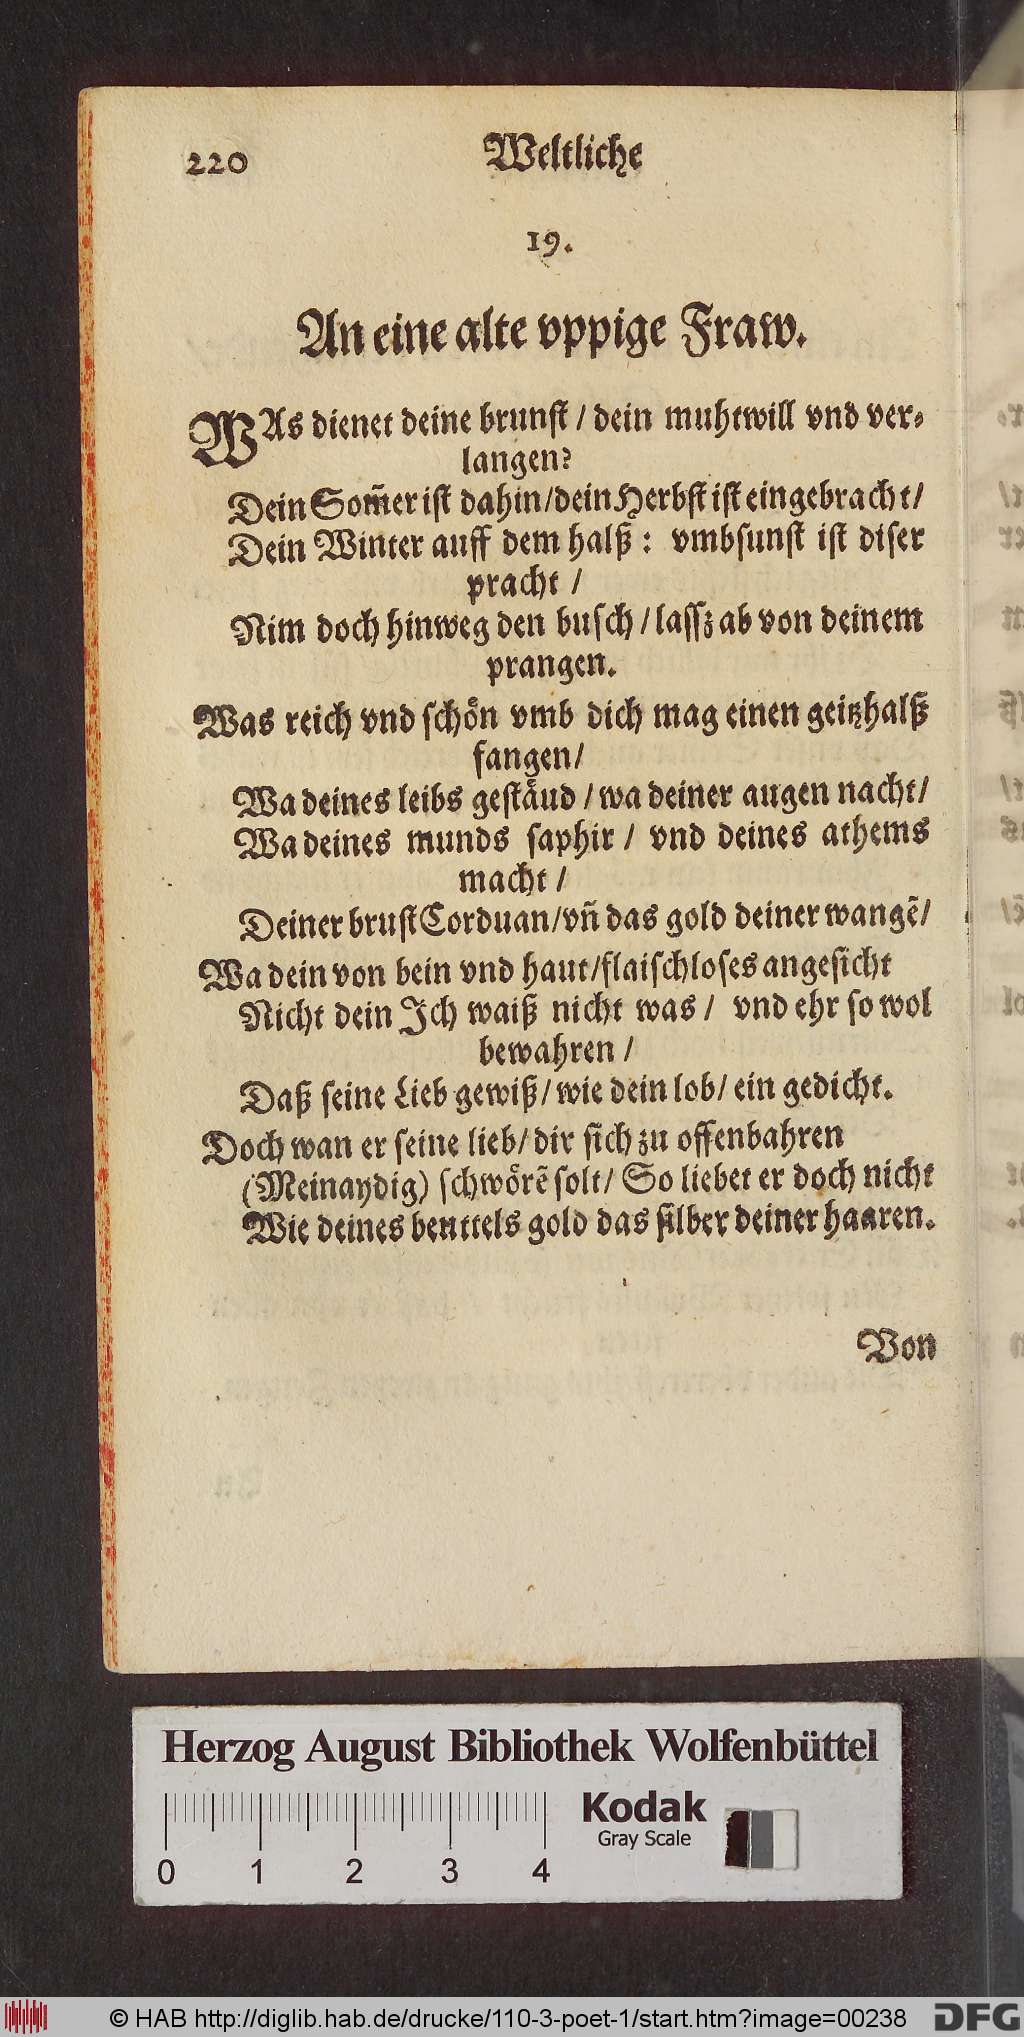 220 Weltliche
19.
An eine alte vppige Fraw.
WAs dienet deine brunst / dein muhtwill vnd ver⸗
langen?
Dein Som̃er ist dahin/dein Herbst ist eingebracht/
Dein Winter auff dem halß : vmbsunst ist diser
pracht /
Nim doch hinweg den busch / lassz ab von deinem
prangen.
Was reich vnd schön vmb dich mag einen geitzhalß
fangen/
Wa deines leibs gestäud / wa deiner augen nacht/
Wa deines munds saphir / vnd deines athems
macht /
Deiner brust Corduan/vñ das gold deiner wangẽ/
Wa dein von bein vnd haut/flaischloses angesicht
Nicht dein Jch waiß nicht was / vnd ehr so wol
bewahren /
Daß seine Lieb gewiß/ wie dein lob/ ein gedicht.
Doch wan er seine lieb/ dir sich zu offenbahren
(Meinaydig) schwörẽ solt/ So liebet er doch nicht
Wie deines beuttels gold das silber deiner haaren.
Von
Herzog August Bibliothek Wolfenbüttel
0 1 2 3 4
Kodak
Gray Scale
© HAB http://diglib.hab.de/drucke/110-3-poet-1/start.htm?image=00238
DFG